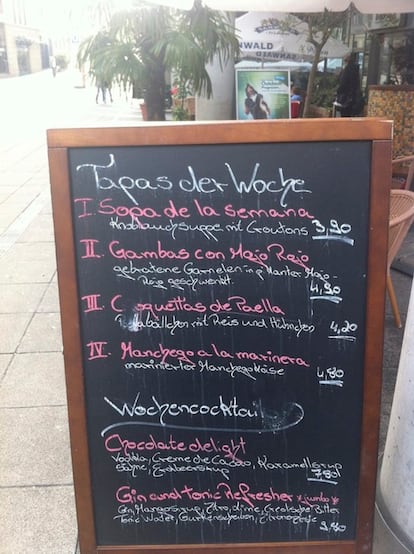 NWALD
Tapas der Woche
I. Sopa de la semana
Knoblauchsuppe mit Croutons 3,90
II. Gambas con Mojo Rojo
gebratene Garnelen in pikanter Mojo-
Rojo geschwenkt 4,90
III. Croquettas de Paella
bällchen mit Reis und Hühnchen 4,20
IV. Manchego a la marinera
marinierter Manchegokäse 4,90
Wochencocktail
Chocolate delight
Vodka, Creme de Cacao, Karamellsirup
Sahne, Erdbeersirup 7,80
Gin and Tonic Refresher *jumbo*
Gin, Mangosirup, Bitter
Tonic Water, Gurkenscheiben, Zitronen